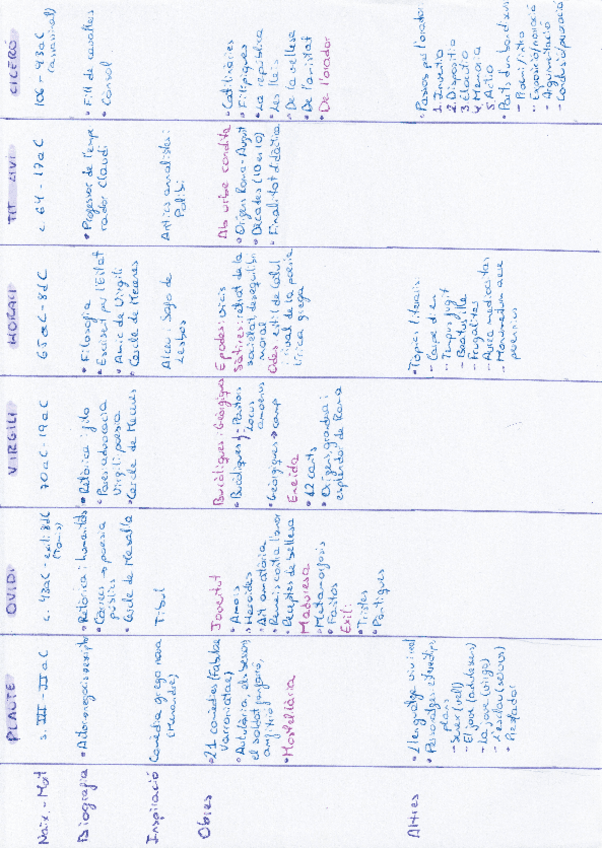 PLAUTE
OVIDI
VIRGILI
HORACI
TIT LIVI
CICERÓ
Naix. - Mort
s. III - II aC
c. 43aC - exili 8dC
(Tomis)
70 aC - 19 aC
65 aC - 8 dC
c. 64 - 17 aC
106 - 43 aC
(assassinat)
Biografia
• Actor → negocis →
• Retòrica i humanitats
• Càrrecs → poesia
públics
• Cercle de Messal·la
• Retòrica i
• advocacia
Virgili: poesia
• Cercle de Mecenes
• Filosofia
• per l'Estat
• Amic de Virgili
• Cercle de Mecenes
• Professor de l'empe
rador Claudi
• Fill de cavallers
• Cònsol
Inspiració
Comèdia grega nova
(Menandre)
Tibul
Alceu i Safo de
Lesbos
Antics analistes i
Polibi
Obres
• 21 comèdies (Fabulae
Varronianae)
• Aulularia, els bessons,
el soldat fanfarró,
amfitrió
• Mostellària
Joventut
• Amors
• Heroides
• Art amatòria
• Remeis contra l'amor
• Receptes de bellesa
Maduresa
• Metamorfosis
• Fastos
Exili
• Tristes
• Pòntiques
Bucòliques i Geòrgiques
• Bucòliques → Pastors
locus
amoenus
• Geòrgiques → camp
Eneida
• 12 cants
• Orígens, grandesa i
esplendor de Roma
Epodes: crisis
Sàtires: retrat de la
societat, desequilibri
moral
Odes: estil de Catul
i rival de la poesia
lírica grega
Ab urbe condita
• Orígens Roma - August
• Dècades (10 en 10)
• Finalitat didàctica
• Catilinàries
• Filípiques
• La república
• Les lleis
• De la vellesa
• De l'amistat
• De l'orador
Altres
• Llenguatge
• Personatges estereotips
plans
- Senex (vell)
- El jove (adulescens)
- La jove (virgo)
- L'esclau (servus)
• Prestador
• Tòpics literaris:
- Carpe diem
- Tempus fugit
- Beatus ille
- Frugalitas
- Aurea mediocritas
- Monumentum aere
perennius
• Passos per l'orador:
1. Inventio
2. Dispositio
3. Elocutio
4. Memoria
5. Actio
• Parts d'un bon discurs
- Proemi/
- Exposició/narració
- Argumentació
- Conclusió/peroració